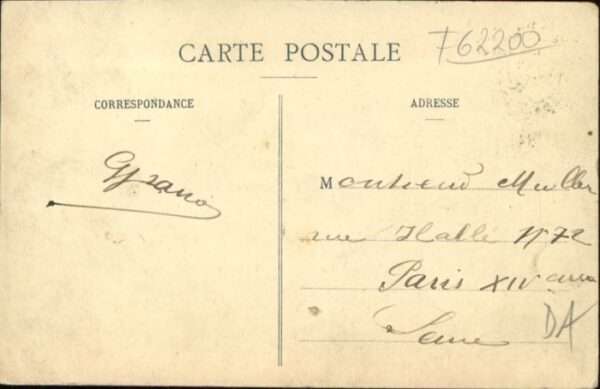 CARTE POSTALE
F62200
CORRESPONDANCE
ADRESSE
Monsieur Muller
rue Hallé N 72
Paris XIV
Seine
DA